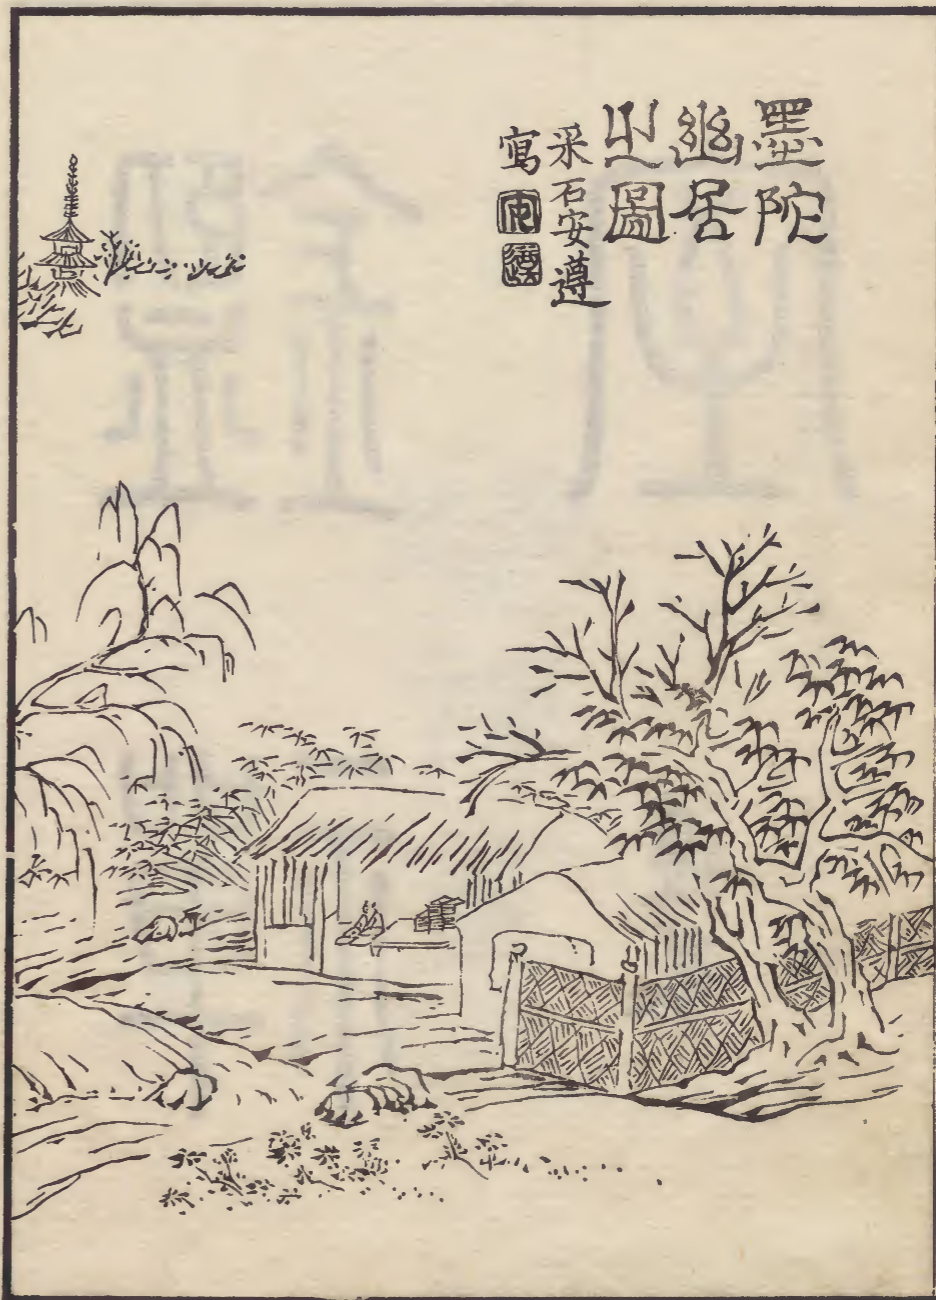 墨陀
幽居
之圖
采石安遵
寫